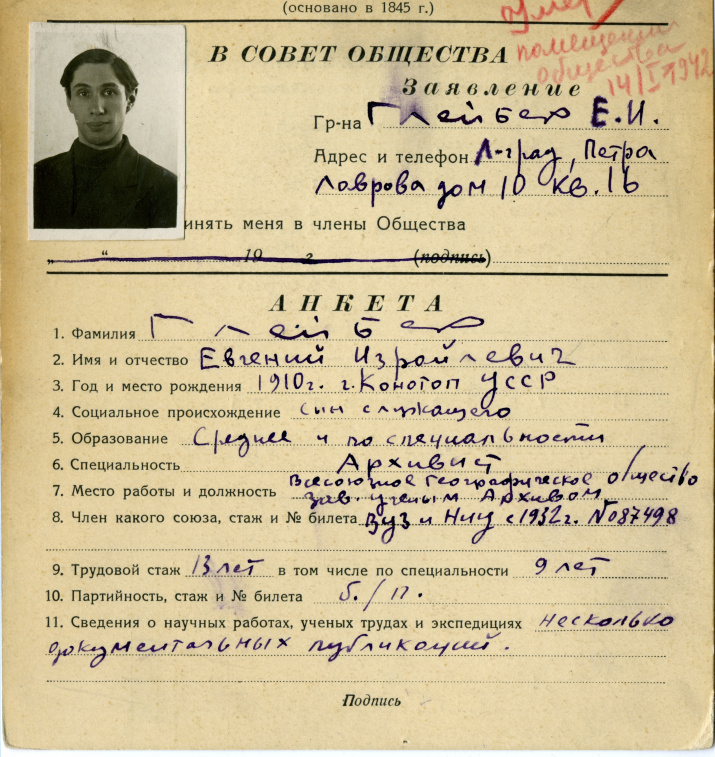 (основано в 1845 г.)
Умер
в помещении
общества
14/I 1942
В СОВЕТ ОБЩЕСТВА
Заявление
Гр-на Глейбер Е.И.
Адрес и телефон Л-град, Петра
Лаврова дом 10 кв. 16
инять меня в члены Общества
„ “ 19 г (подпись)
АНКЕТА
1. Фамилия Глейбер
2. Имя и отчество Евгений Израйлевич
3. Год и место рождения 1910г. г. Конотоп УССР
4. Социальное происхождение сын служащего
5. Образование Среднее и по специальности
6. Специальность Архивист
Всесоюзное Географическое общество
7. Место работы и должность зав. ученым Архивом
8. Член какого союза, стаж и № билета ВУЗ и НИУ с 1932г. №087498
9. Трудовой стаж 13 лет в том числе по специальности 9 лет
10. Партийность, стаж и № билета б./п.
11. Сведения о научных работах, ученых трудах и экспедициях несколько
документальных публикаций.
Подпись